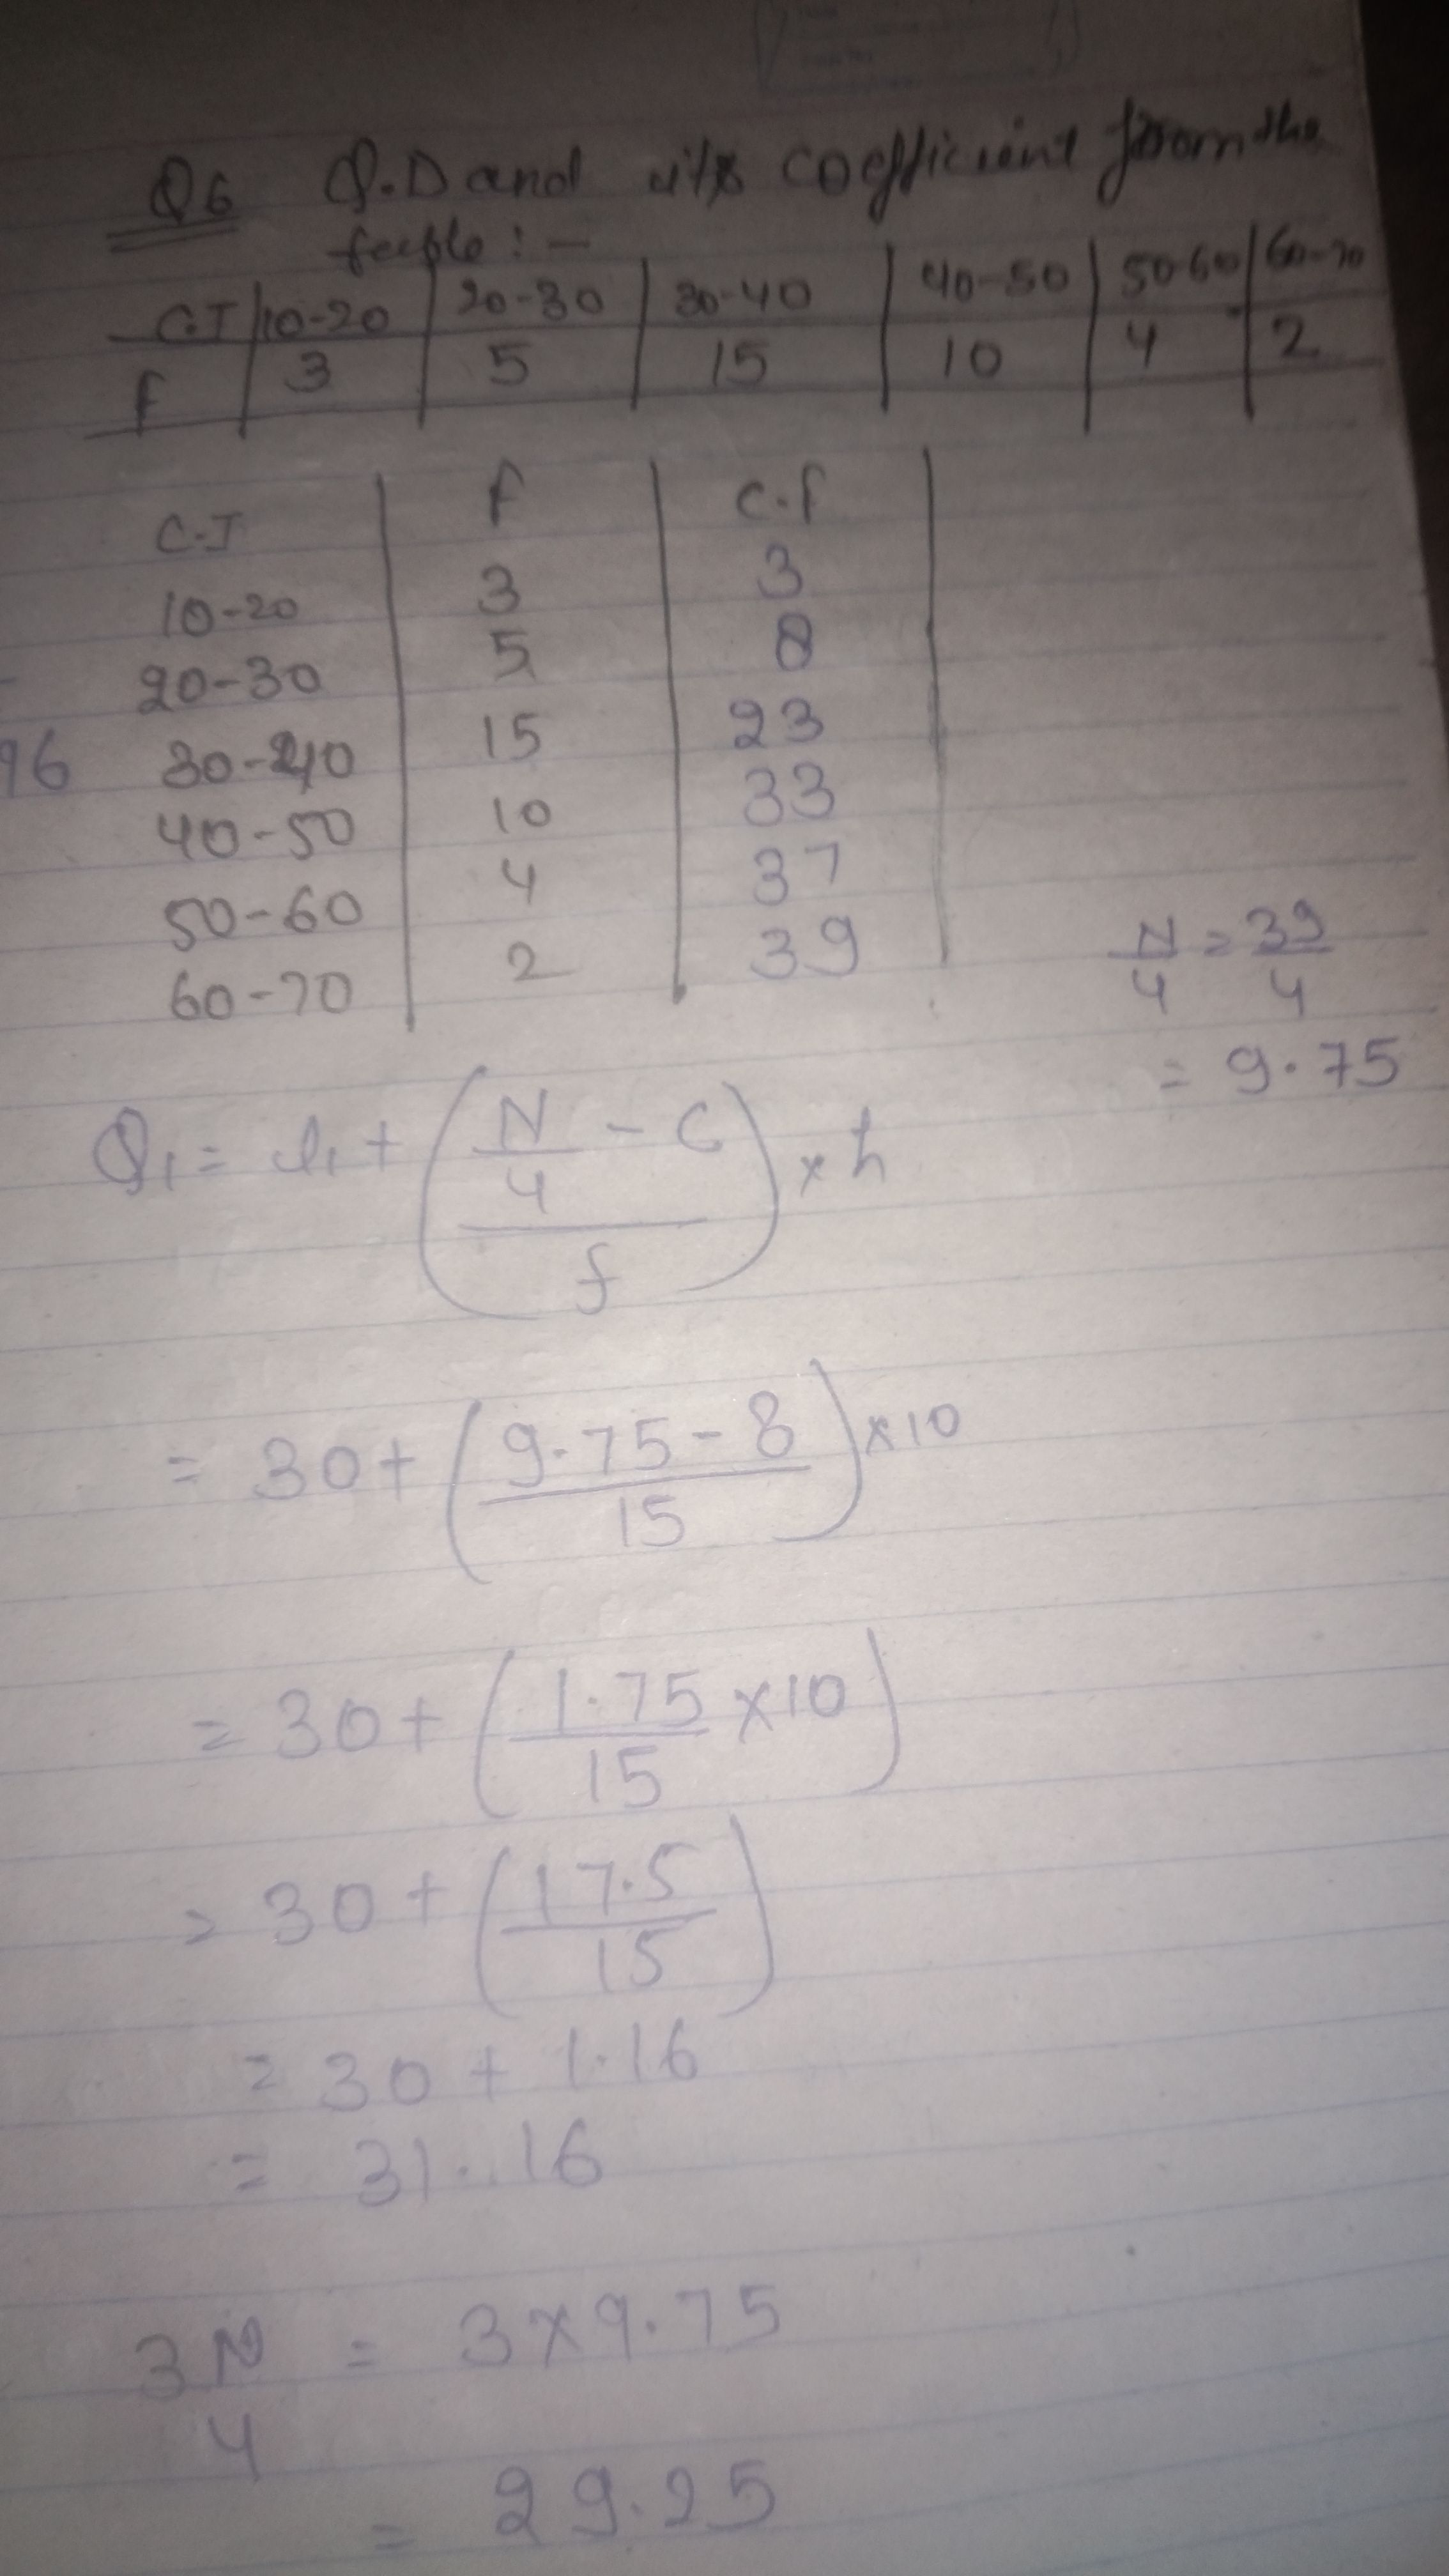 Q6 Q.D and its coefficient from the
table :-
C.I 10-20 20-30 30-40 40-50 50-60 60-70
f 3 5 15 10 4 2
C.I f C.f
10-20 3 3
20-30 5 8
96 30-40 15 23
40-50 10 33
50-60 4 37
60-70 2 39
N/4 = 39/4
= 9.75
Q₁ = l₁ + (N/4 - C / f) × h
= 30 + (9.75 - 8 / 15) × 10
= 30 + (1.75/15 × 10)
= 30 + (17.5/15)
= 30 + 1.16
= 31.16
3N/4 = 3×9.75
= 29.25